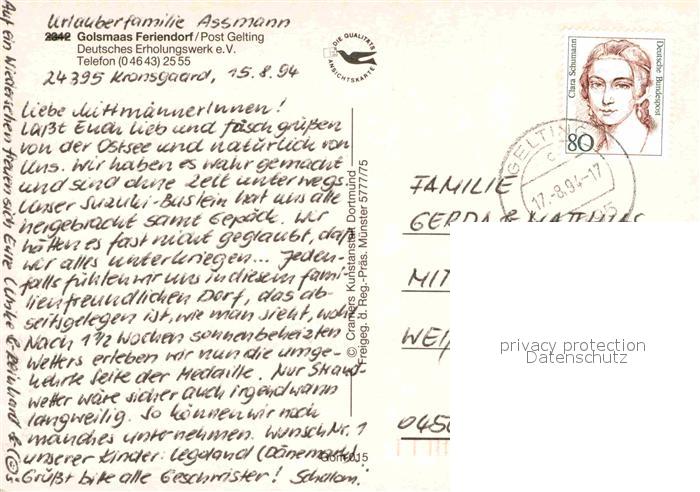 Urlauberfamilie Assmann
2342 Golsmaas Feriendorf/Post Gelting
Deutsches Erholungswerk e.V.
Telefon (0 46 43) 25 55
24395 Kronsgaard, 15.8.94
DIE QUALITÄTS
ANSICHTSKARTE
Liebe MittmännerInnen!
Laßt Euch lieb und frisch grüßen
von der Ostsee und natürlich von
uns. Wir haben es wahr gemacht
und sind ohne Zelt unterwegs.
Unser Suzuki-Buslein hat uns alle
hergebracht samt Gepäck. Wir
hätten es fast nicht geglaubt, daß
wir alles unterkriegen... Jeden-
falls fühlen wir uns in diesem fami-
lienfreundlichen Dorf, das ab-
seits gelegen ist, wie man sieht, wohl.
Nach 1 1/2 Wochen sonnenbeheizten
Wetters erleben wir nun die umge-
kehrte Seite der Medaille. Nur Strand-
wetter wäre sicher auch irgendwann
langweilig. So können wir noch
manches unternehmen. Wunsch Nr. 1
unserer Kinder: Legoland (Dänemark)!
Grüßt bitte alle Geschwister! Schalom!
Auf ein Wiedersehen freuen sich Eure Ulrike & Reinhard &
© Cramers Kunstanstalt Dortmund
Freigeg. d. Reg.-Präs. Münster 5777/75
015
Clara Schumann
Deutsche Bundespost
80
GELTING
17.-8.94-17
FAMILIE
GERDA & MATTHIAS
MIT
WEI
0450
privacy protection
Datenschutz